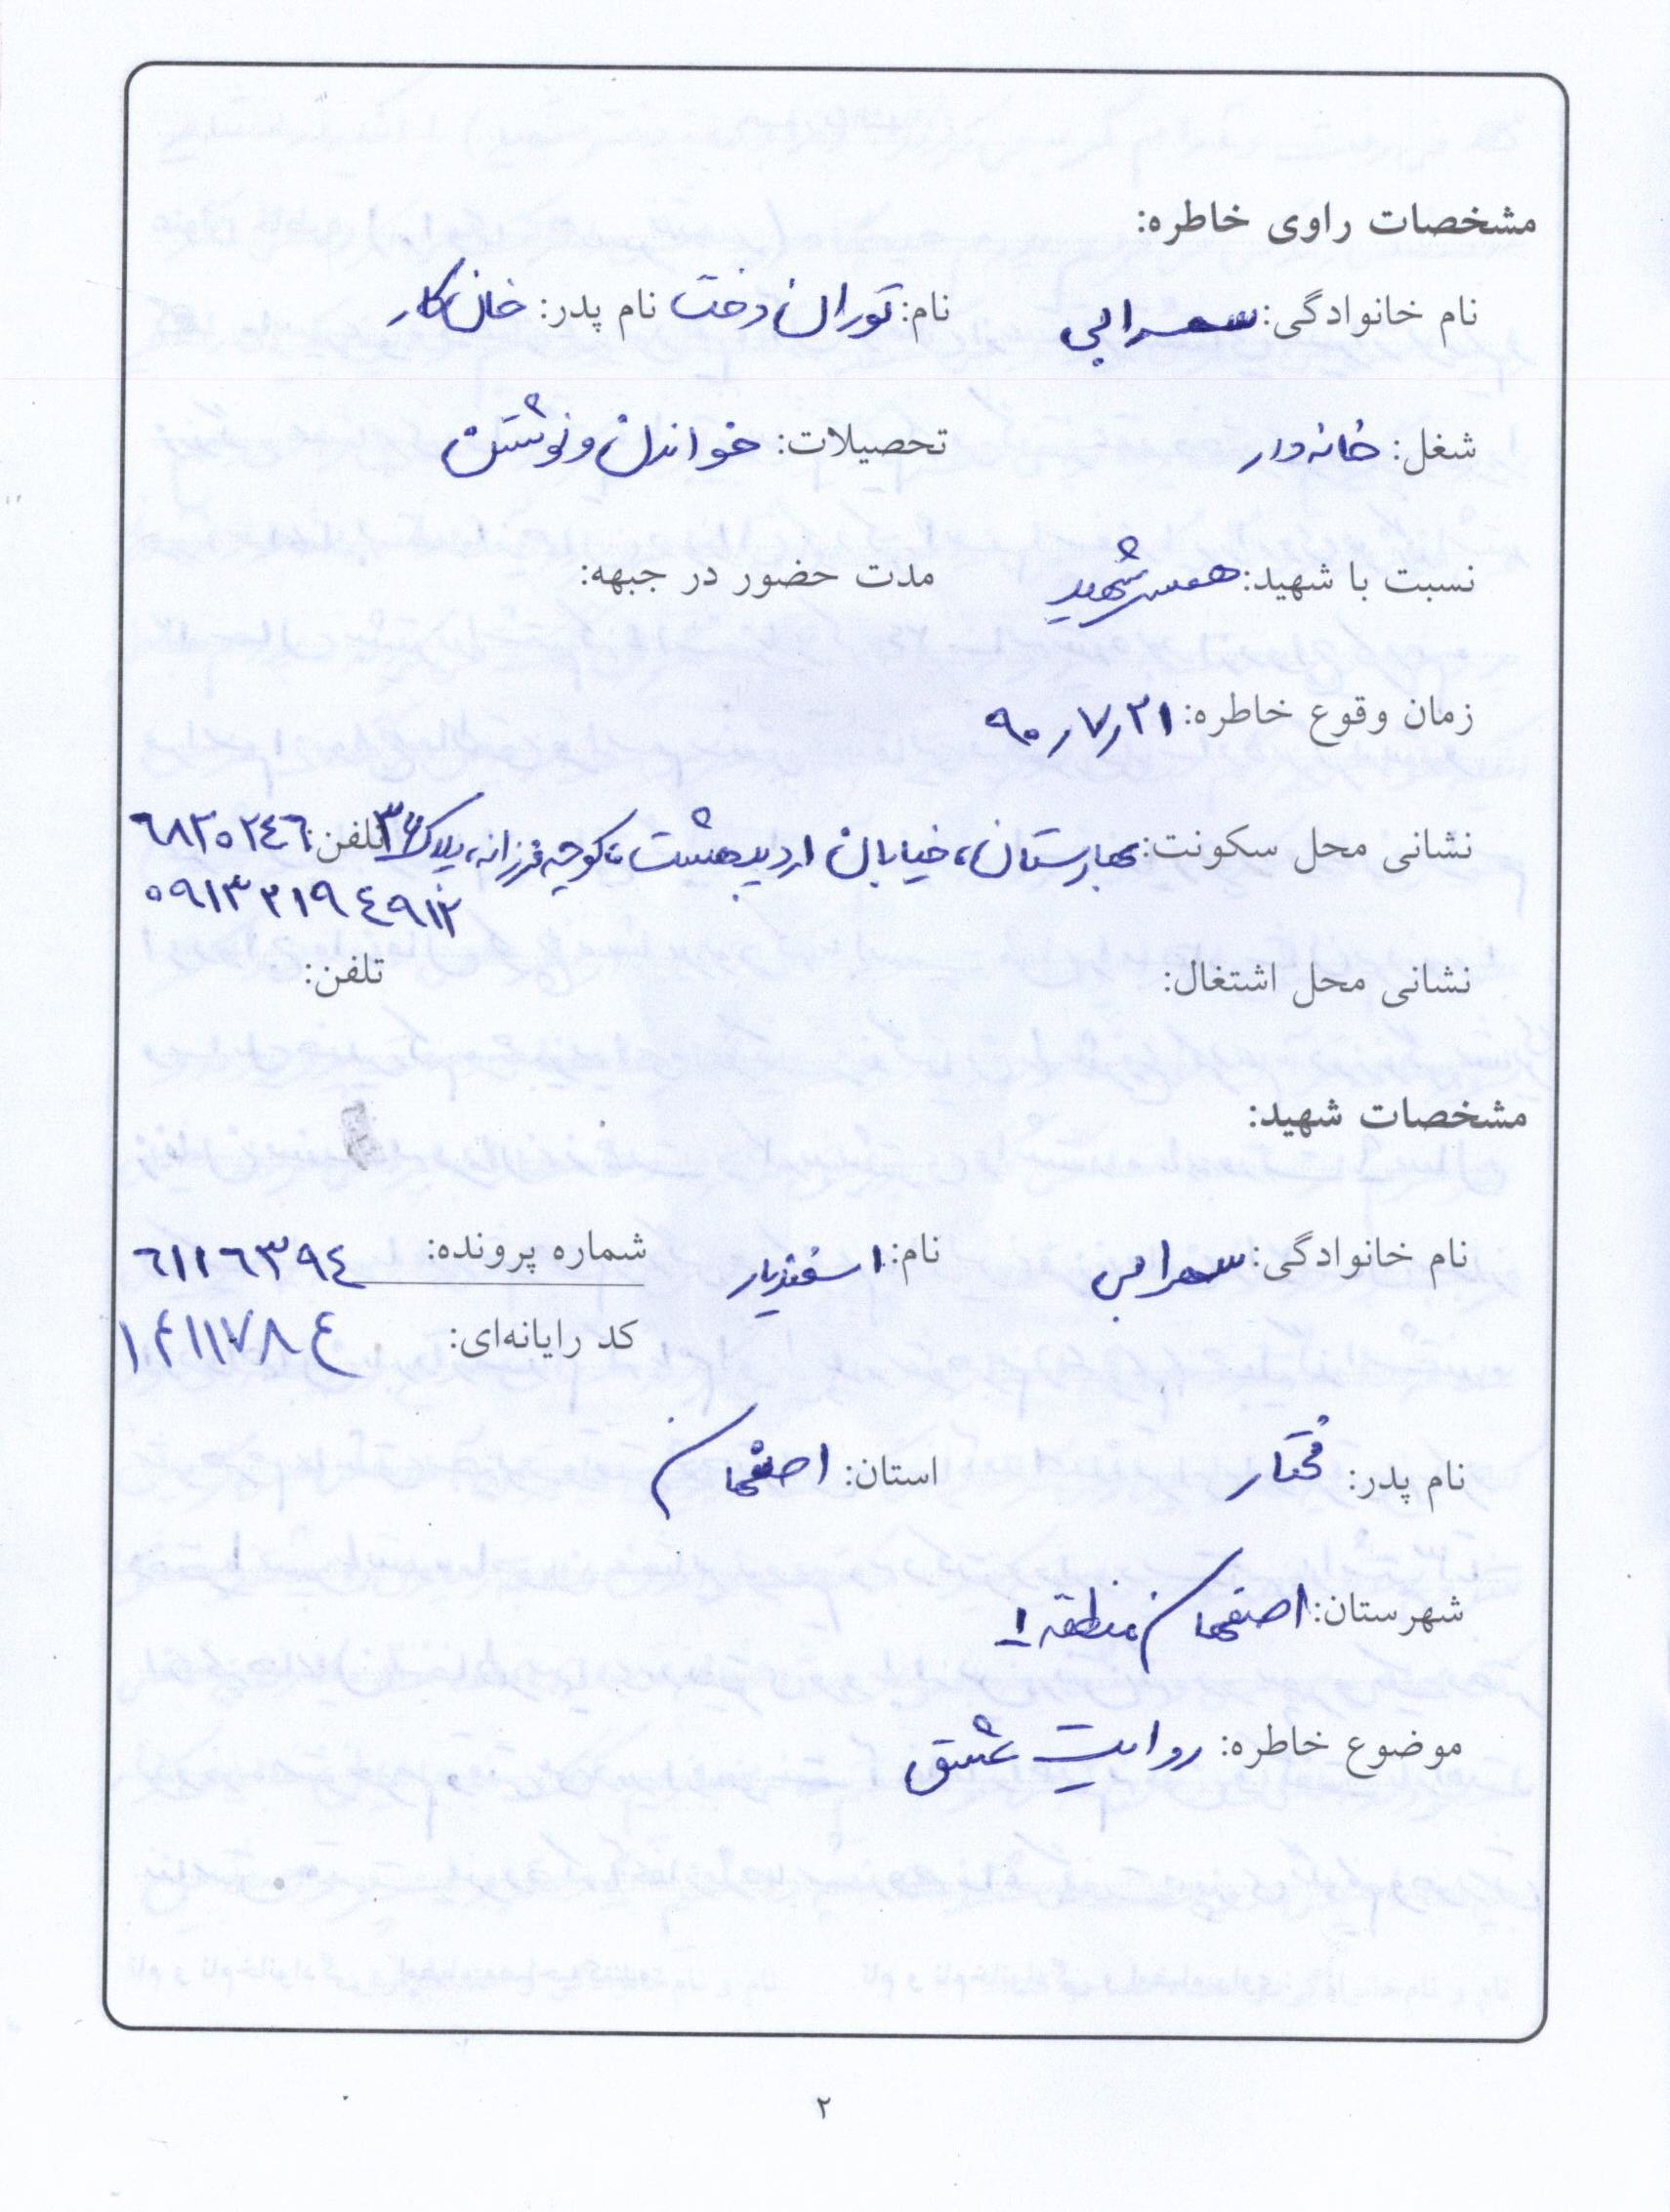 مشخصات راوی خاطره:
نام خانوادگی: سهرابی نام: توران دخت نام پدر: خان کار
شغل: خانه دار تحصیلات: خواندن و نوشتن
نسبت با شهید: همسر شهید مدت حضور در جبهه:
زمان وقوع خاطره: ۹۰/۷/۲۱
نشانی محل سکونت: بهارستان، خیابان اردیبهشت، کوچه فرزانه، پلاک ۳۶ تلفن: ۶۸۲۰۲۴۶
نشانی محل اشتغال: تلفن:
مشخصات شهید:
نام خانوادگی: سهرابی نام: اسفندیار شماره پرونده: ۶۱۱۶۳۹۴
کد رایانه‌ای: ۱۴۱۱۷۸۴
نام پدر: مختار استان: اصفهان
شهرستان: اصفهان منطقه ۱
موضوع خاطره: روایت عشق
۲